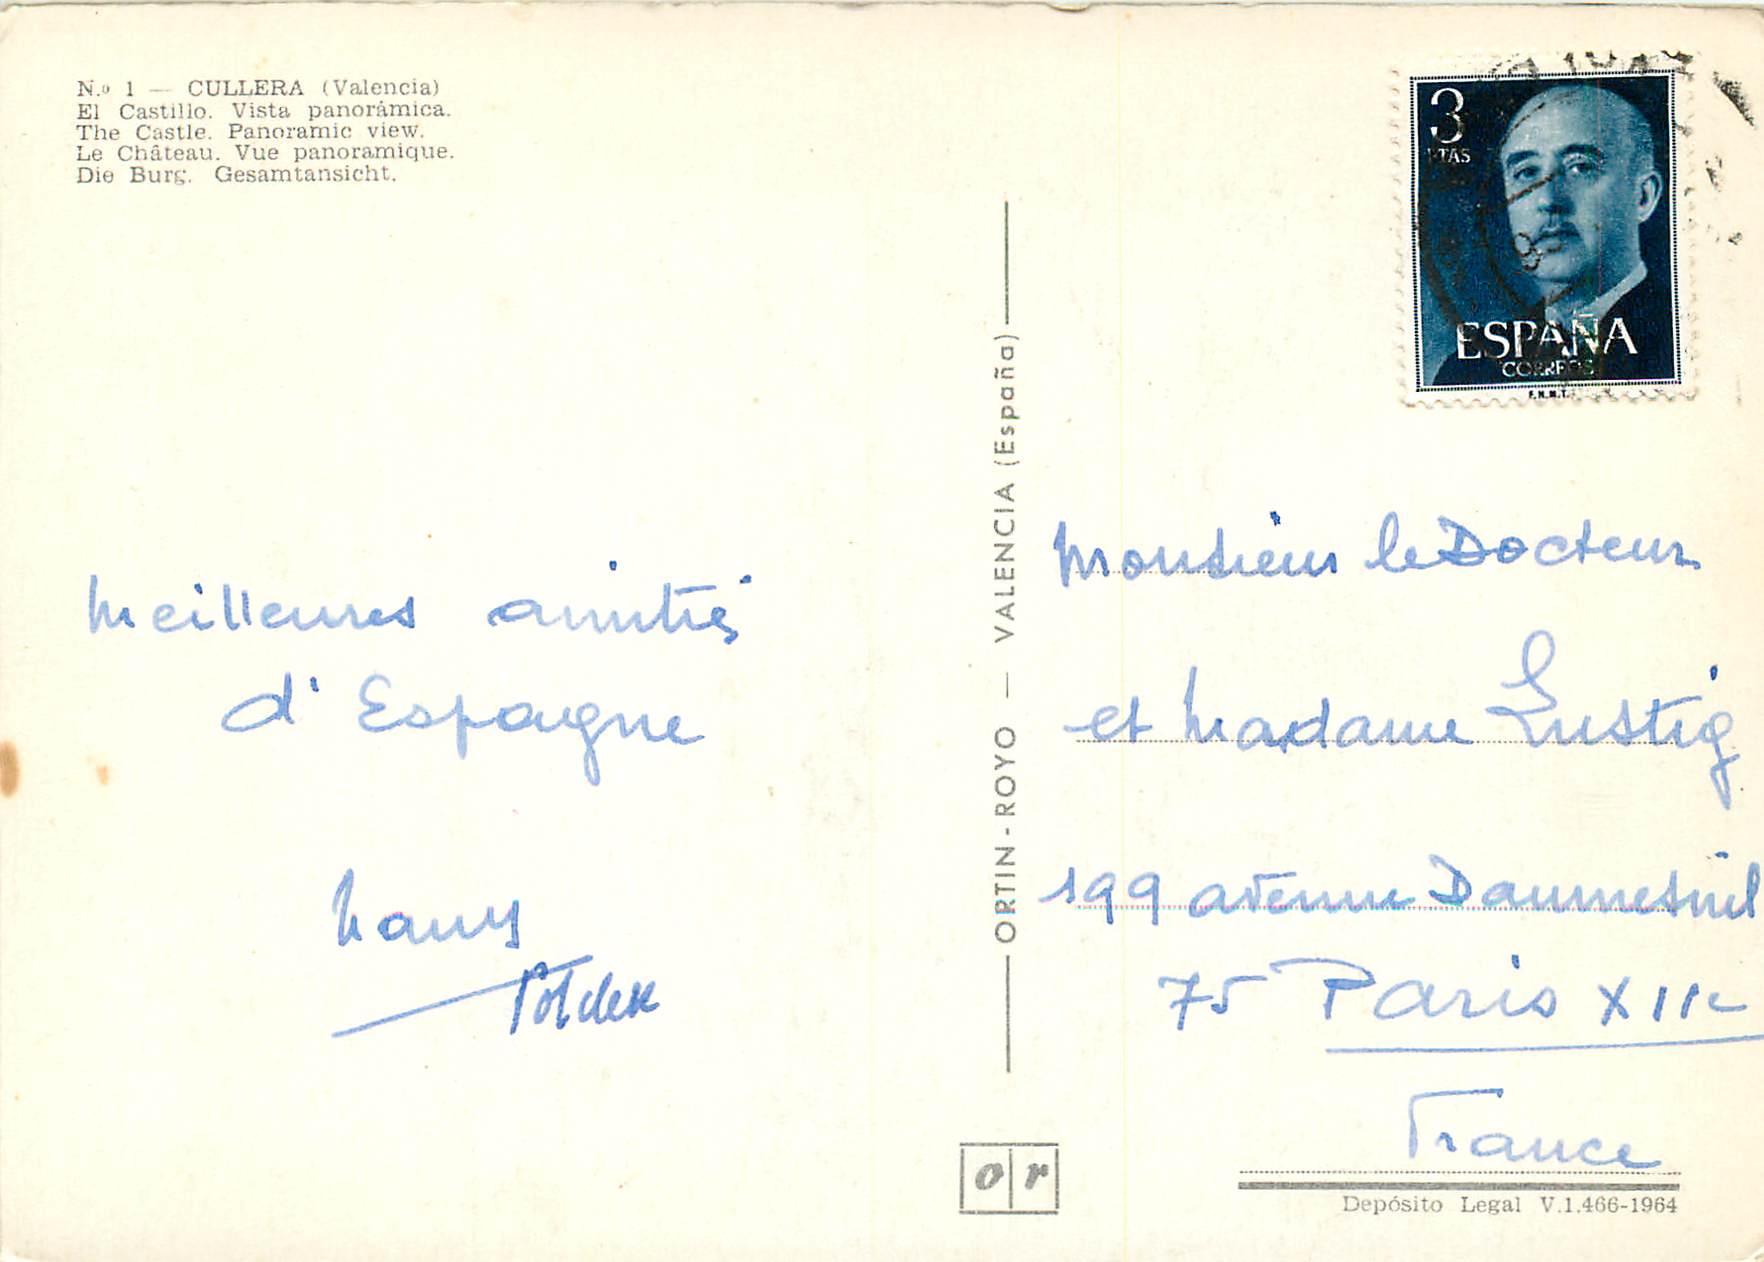 N.º 1 — CULLERA (Valencia)
El Castillo. Vista panorámica.
The Castle. Panoramic view.
Le Château. Vue panoramique.
Die Burg. Gesamtansicht.
Meilleures amitiés
d'Espagne
ORTIN-ROYO — VALENCIA (España)
3
PTAS
ESPAÑA
CORREOS
F.N.M.T.
Monsieur le Docteur
et Madame Lustig
199 avenue Daumesnil
75 Paris XIIe
France
o r
Depósito Legal V.1.466-1964